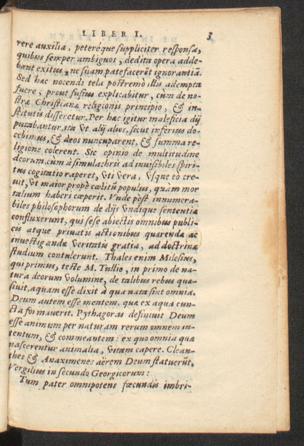 LIBER I. 5
rere auxilia, petereque suppliciter responsa,
quibus semper ambiguis, dedita opera adde-
bant exitus, ne suam patefacerēt ignorantiā.
Sed hac nocendi tela postremò illis adempta
fuere, prout fusius explicabitur, cùm de no-
stra Christianæ religionis principio, & in-
stitutis disseretur. Per hac igitur maleficia dij
putabantur, siu Vt alij alios, sicut inferius do-
cebimus, & deos nuncuparent, & summa re-
ligione colerent. Sic opinio de multitudine
deorum, cùm à simulachris ad inuisibiles spiri-
tus cogitatio raperet, Vti vera, Vsque eò cre-
uit, Vt maior propè cælitū populus, quàm mor
talium haberi cœperit. Vnde pòst innumera-
biles philosophorum de dijs Vndique sententiæ
confluxerunt, qui sese abiectis omnibus publi-
cis atque priuatis actionibus quærenda ac
inuestigāda veritatis gratia, ad doctrinæ
studium contulerunt. Thales enim Milesius,
qui primus, teste M. Tullio, in primo de na-
tura deorum volumine, de talibus rebus quæ-
siuit, aquam esse dixit à qua nata sint omnia.
Deum autem esse mentem, quæ ex aqua cun-
cta formauerit. Pythagoras definiuit Deum
esse animum per naturam rerum omnem in-
tentum, & commeantem: ex quo omnia quæ
nascerentur animalia, vitam capere. Clean-
thes & Anaximenes aërem Deum statuerūt,
Vergilius in secundo Georgicorum:
Tum pater omnipotens fœcundis imbri-